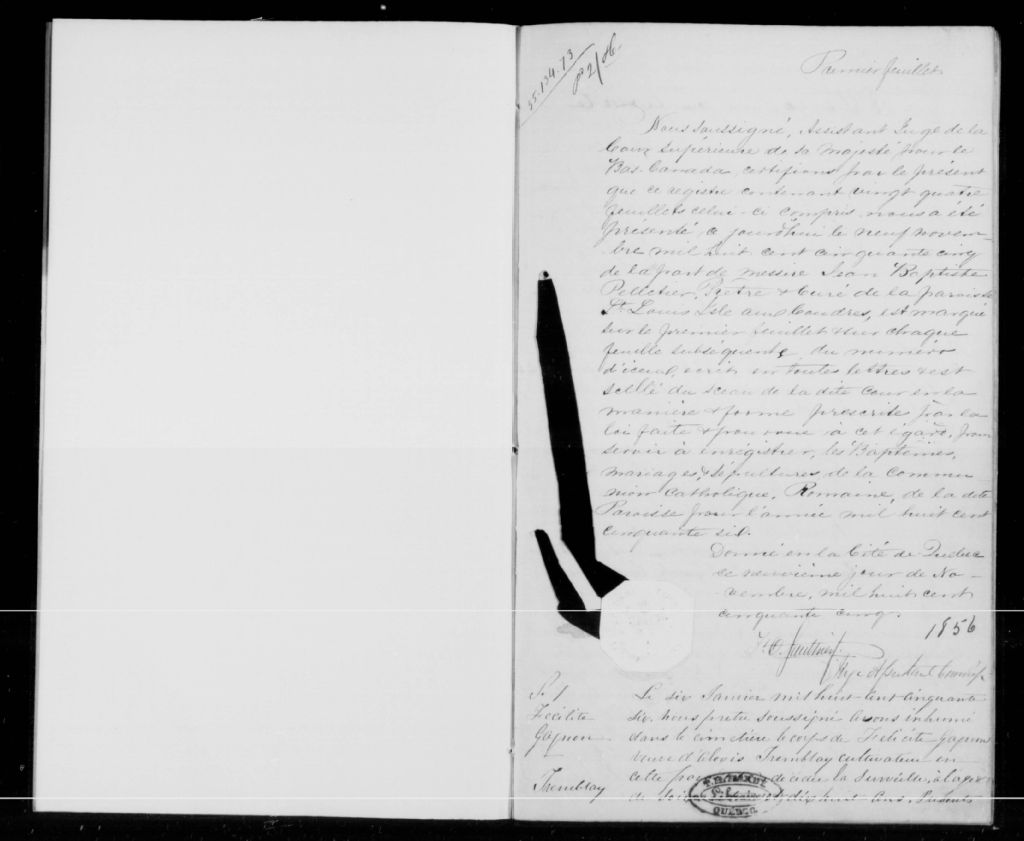 55.134.73
Premier feuillet
Nous soussigné, Assistant Juge de la
Cour Supérieure de sa majesté, pour le
Bas Canada, certifions par le présent
que ce registre contenant vingt quatre
feuillets celui-ci compris, nous a été
présenté, ce jourd'hui le neuf novem-
bre mil huit cent cinquante cinq
de la part de messire Jean Baptiste
Pelletier, Prêtre & Curé de la paroisse
St. Louis Isle aux Coudres, est marqué
sur le premier feuillet & sur chaque
feuille subséquente, du numéro
d'iceux, écrit en toutes lettres & est
scéllé du sceau de la dite cour en la
manière & forme prescrite par la
loi faite & pourvue à cet égard, pour
servir à enrégistrer, les Baptêmes,
mariages, & sépultures de la Commu-
nion Catholique, Romaine, de la dite
Paroisse pour l'année mil huit cent
cinquante six.
Donné en la Cité de Québec
ce neuvième jour de No-
vembre, mil huit cent
cinquante cinq.
1856
Gauthier
S. 1
Félicité
Gagnon
Tremblay
Le six Janvier mil huit cent cinquante
six, nous prêtre soussigné avons inhumé
dans le cimetière le corps de Félicité Gagnon
veuve d'Elovis Tremblay cultivateur en
cette décédée la surveille, à l'age
de dix huit ans. Présents
St. Louis
QUÉBEC